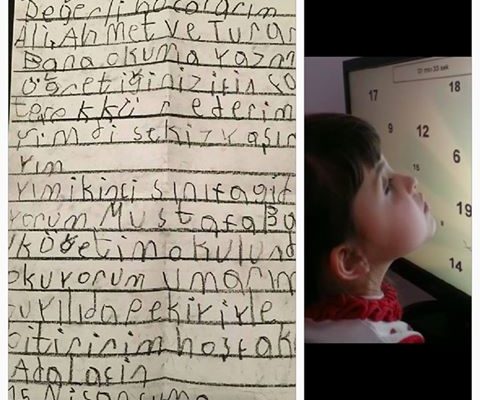 Değerli hocalarım
Ali, Ahmet ve Turan
Bana okuma yazm
öğretiğiniz için ço
terekkür ederim
yimdi sekiz yaşın
yım
yım ikinci sınıfa git
yorum Mustafa Ba
lköğretim okulund
okuyorum umarım
bu yılıda pekiyiyle
bitiririm hoşcak
15 Nisan cuma
01 min 33 sek
17
18
9
12
15
6
19
14